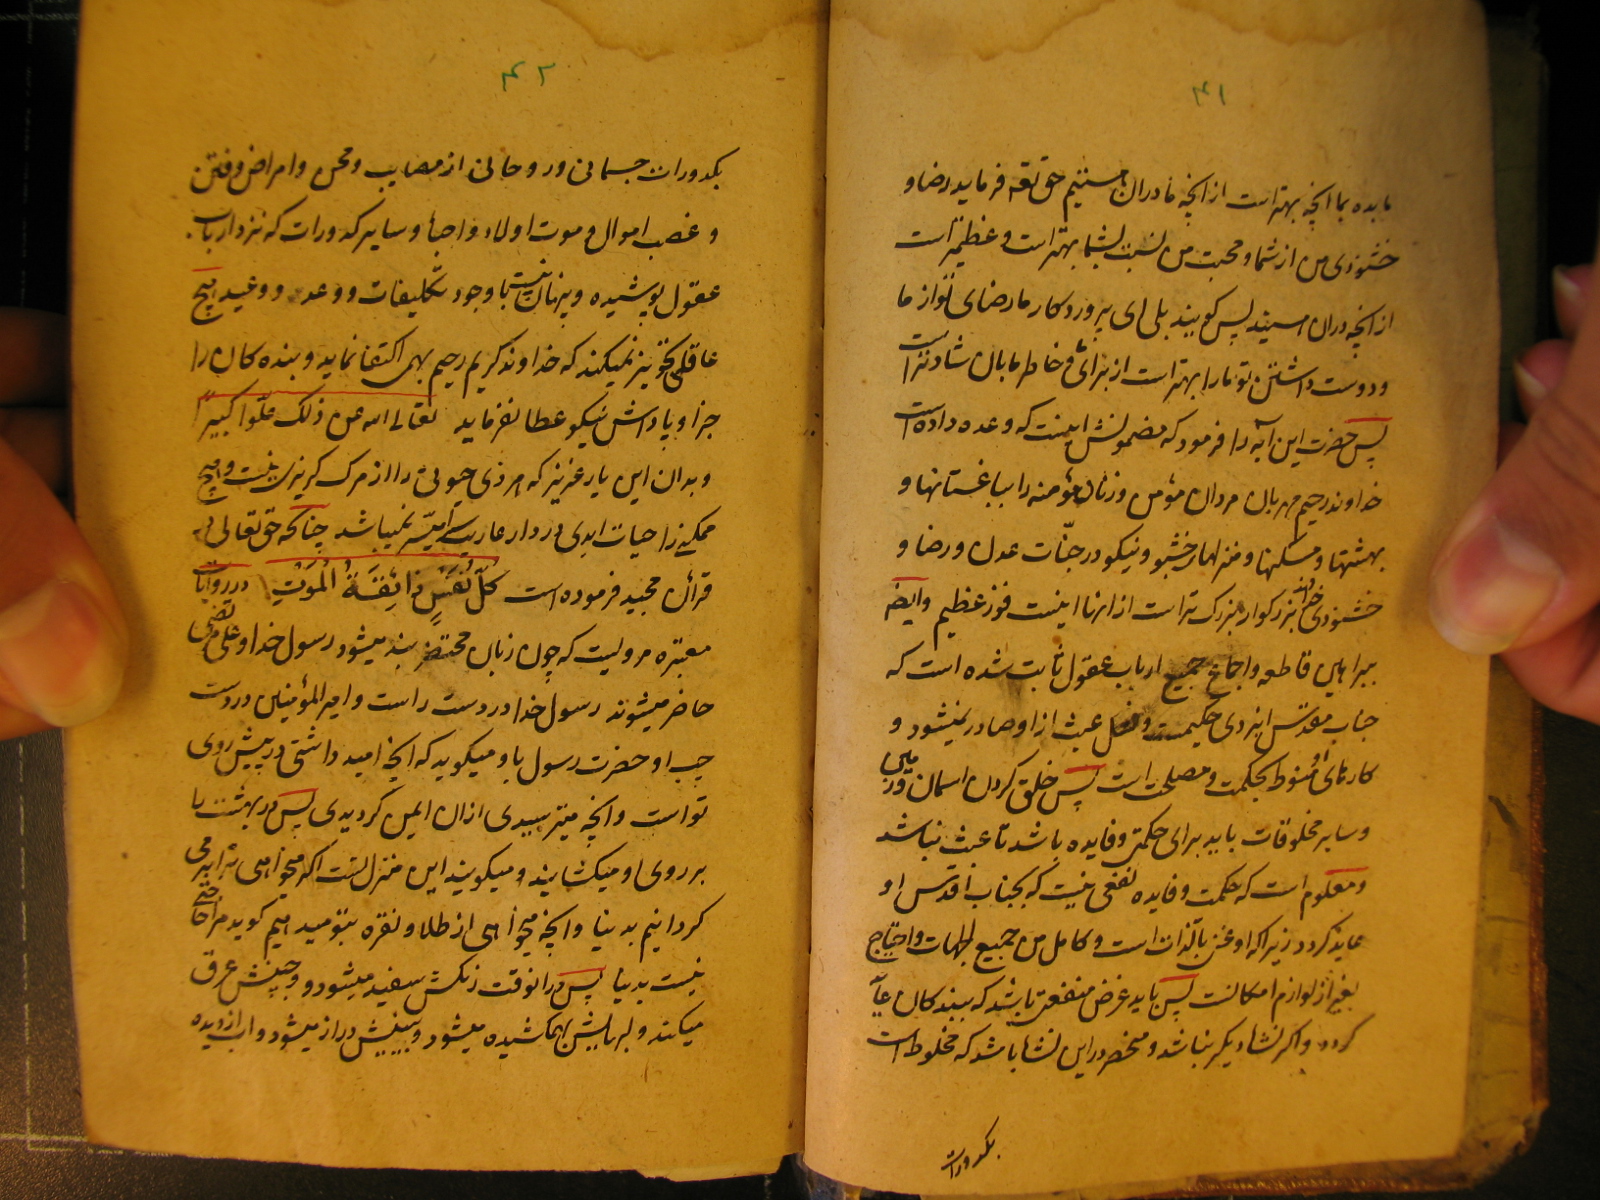 ۴۱
ما بده بما آنچه بهتر است از آنچه ما دران هستیم حق تعه فرماید رضا و
خشنودی من از شما و محبت من نسبت بشما بهتر است و عظیمتر است
از آنچه دران هستید پس کویند بلی ای پروردکار ما رضای تو از ما
و دوست داشتن تو ما را بهتر است از برای و خاطر ما بان شادتر است
پس حضرت این آیه را فرمود که مضمونش اینست که وعده داده است
خداوند رحیم مهربان مردان مؤمن و زنان مؤمنه را بباغستانها و
بهشتها و مسکنها و منزلهار خشبو و نیکو در جنّات عدن و رضا و
خشنودی خداوند بزرکوار بزرک تر است از اینها اینست فوز عظیم و ایضا
ببراهین قاطعه و اجماع جمیع ارباب عقول ثابت شده است که
جناب مقدّس ایزدی حکیمست و فعل عبث از او صادر نمیشود و
کارهای او منوط بحکمت و مصلحت است پس خلق کردن اسمان و زمین
و سایر مخلوقات باید برای حکمتی و فایده باشد تا عبث نباشد
و معلوم است که حکمت و فایده نفعی نیست که بجناب اقدس او
عاید کردد زیرا که او غنی بالذات است و کامل من جمیع الجهات و احتیاج
بغیر از لوازم امکانست پس باید غرض منفعتی باشد که ببندکان عاید
کردد و اکر نشاه دیکر نباشد و منحصر در این نشاه باشد که مخلوط است
بکدورات
۴۲
بکدورات جسمانی و روحانی از مصایب و محن و امراض و فتن
و غصب اموال و موت اولاد و احبا و سایر کدورات که نزد ارباب
عقول پوشیده و پنهان نیست با وجود تکلیفات و وعد و وعید هیچ
عاقلی تجویز نمیکند که خداوند کریم رحیم بهمی اکتفا نماید و بنده کان را
جزا و پاداش نیکو عطا نفرماید تعالی الله عن ذلک علّوا کبیرا
و بدان این یار عزیز که هر ذی حیوتی را از مرک کریزی نیست و هیچ
ممکنی را حیات ابدی در دار عاریتی میسّر نمیباشد چنانکه حق تعالی در
قرآن مجید فرموده است کُلّ نَفسٍ ذائِقَةُ المَوتِ در روایات
معتبره مرویست که چون زبان محتضر بند میشود رسول خدا و علی مرتضی
حاضر میشوند رسول خدا در دست راست و امیرالمؤمنین در دست
چپ او حضرت رسول باو میکوید که آنچه امید داشتی در پیش روی
تو است و آنچه میترسیدی ازان ایمن کردیدی پس در بهشت را
بر روی او میکشایند و میکویند این منزل تست اکر میخواهی ترا بر می
کردانیم بدنیا و آنچه میخواهی از طلا و نقره بتو میدهیم کوید مرا حاجتی
نیست بدنیا پس درانوقت رنکش سفید میشود و جبینش عرق
میکند و لبهایش بهم کشیده میشود و بینیش دراز میشود و آب از دیده